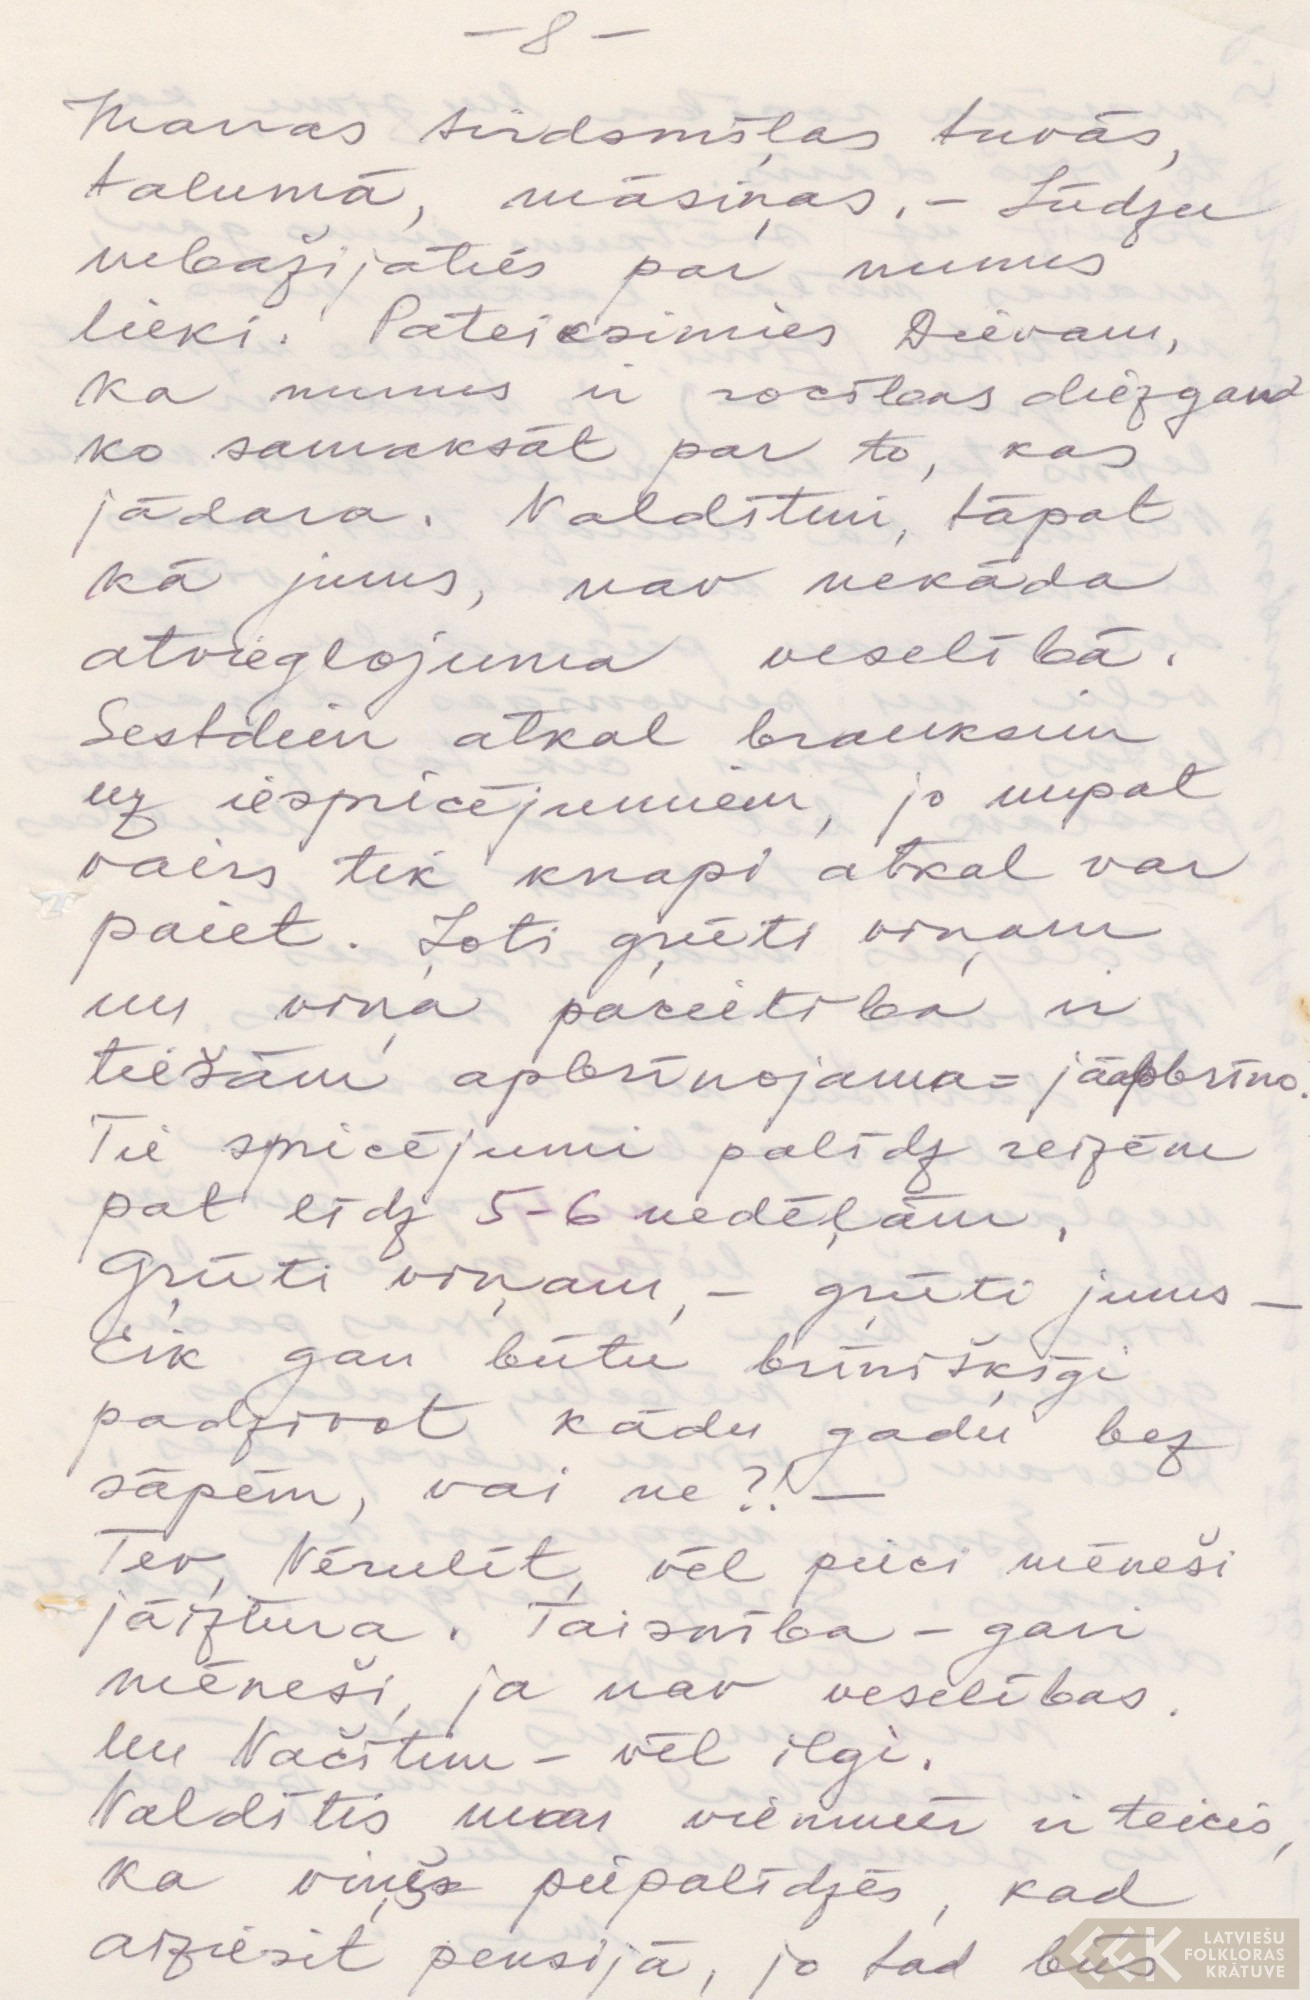 - 8 -
Manas sirdsmīļas tuvās,
tālumā, māsiņas. - Lūdzu
nebažījaties par mums
lieki. Pateiksimies Dievam,
ka mums ir rocības diezgand
ko samaksāt par to, kas
jādara. Naldītim, tāpat
kā jums, nav nekāda
atvieglojuma veselībā.
Sestdien atkal brauksim
uz iešpricējumiem, jo nupat
vairs tik knapi atkal var
paiet. Ļoti gŗūti viņam
un viņa pacietība ir
tiešām apbrīnojama = jāapbrīno.
Tie špricējumi palīdz reizēm
pat līdz 5-6 nedēļām.
Gŗūti viņam, - gŗūti jums -
Cik gan būtu brīnišķīgi
padzīvot kādu gadu bez
sāpēm, vai ne?! -
Tev, Nērulīt, vēl pieci mēneši
jāiztura. Taisnība - gaŗi
mēneši, ja nav veselības.
Un Načītim - vēl ilgi.
Naldītis man vienmēr ir teicis,
ka viņš piepalīdzēs, kad
aiziesit pensijā, jo tad būs
LATVIEŠU
FOLKLORAS
KRĀTUVE